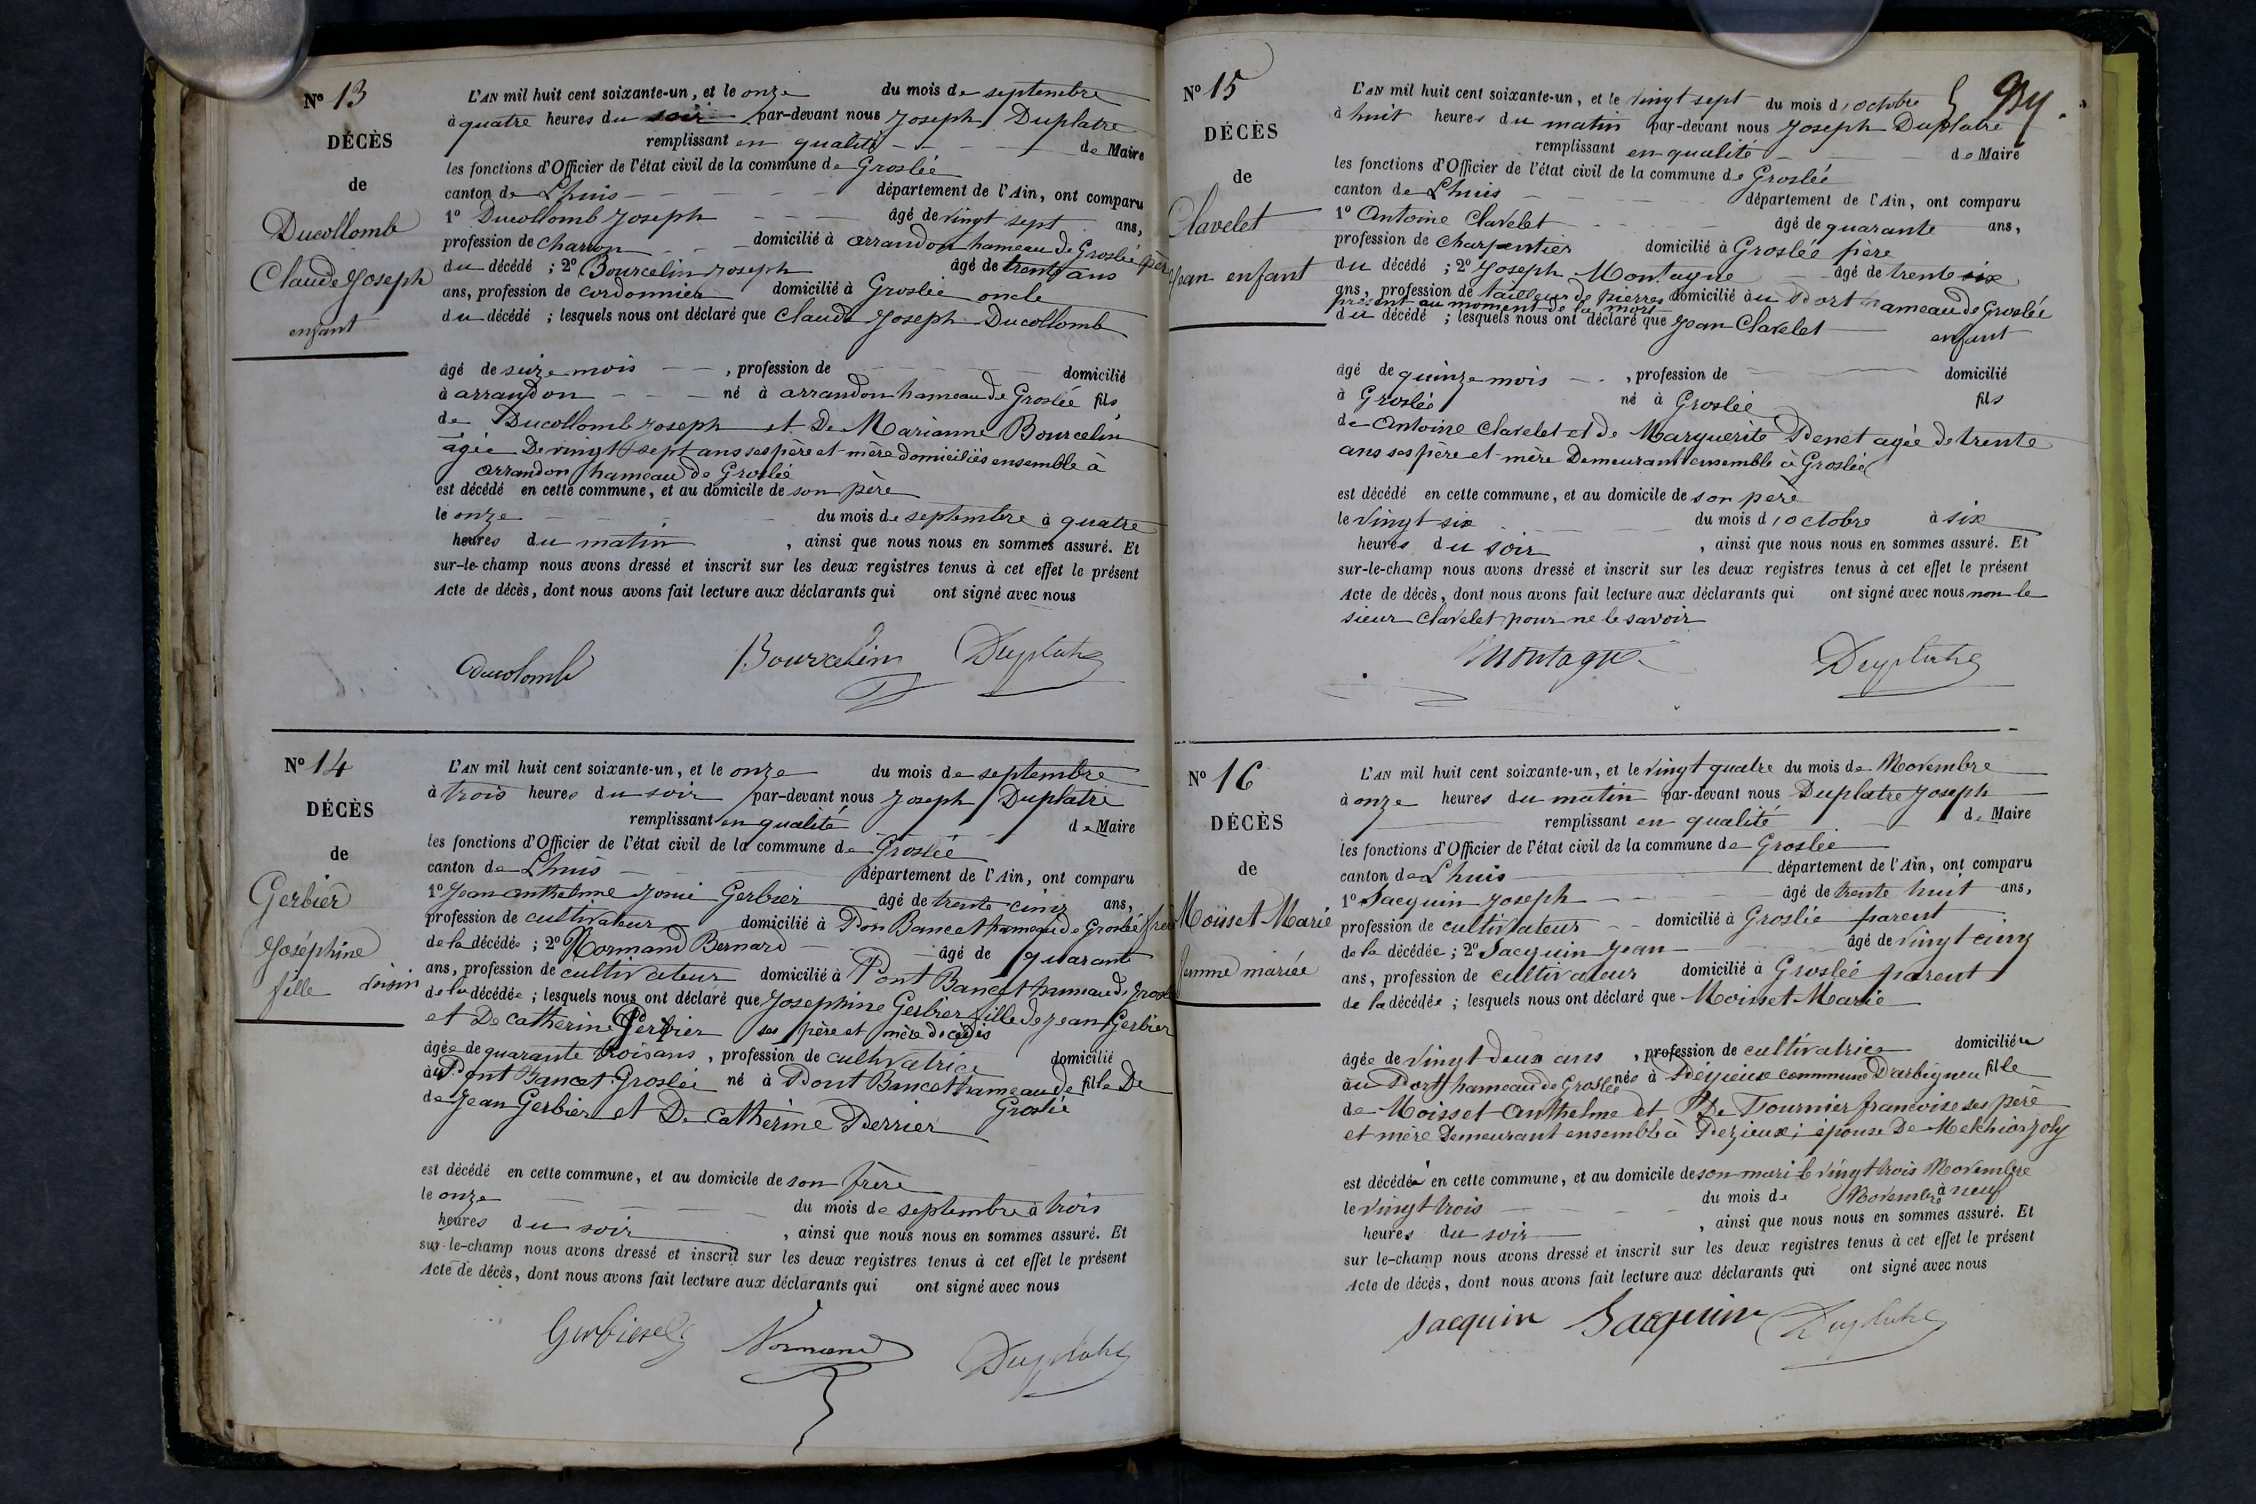 Nº 13
DÉCÈS
de
Ducollomb
Claude Joseph
enfant
L'AN mil huit cent soixante-un, et le onze du mois de septembre
à quatre heures du soir par-devant nous Joseph Duplatre
remplissant en qualité de Maire
les fonctions d'Officier de l'état civil de la commune de Groslée
canton de Lhuis département de l'Ain, ont comparu
1º Ducollomb Joseph âgé de vingt sept ans,
profession de charron domicilié à arrandon hameau de Groslée père
du décédé ; 2º Bourcelin Joseph âgé de trente ans
ans, profession de cordonnier domicilié à Groslée oncle
du décédé ; lesquels nous ont déclaré que Claude Joseph Ducollomb
âgé de seize mois , profession de domicilié
à arrandon né à arrandon hameau de Groslée fils
de Ducollomb Joseph et De Marianne Bourcelin
agée De vingt sept ans ses père et mère domiciliés ensemble à
arrandon hameau de Groslée
est décédé en cette commune, et au domicile de son père
le onze du mois de septembre à quatre
heures du matin , ainsi que nous nous en sommes assuré. Et
sur-le-champ nous avons dressé et inscrit sur les deux registres tenus à cet effet le présent
Acte de décès, dont nous avons fait lecture aux déclarants qui ont signé avec nous
Ducolomb Bourcelin Duplatre
Nº 14
DÉCÈS
de
Gerbier
Joséphine
fille
L'AN mil huit cent soixante-un, et le onze du mois de septembre
à trois heures du soir par-devant nous Joseph Duplatre
remplissant en qualité de Maire
les fonctions d'Officier de l'état civil de la commune de Groslée
canton de Lhuis département de l'Ain, ont comparu
1º Jean anthelme Gerbier âgé de trente cinq ans,
profession de cultivateur domicilié à Pon Bancet hameau de Groslée frère
de la décédée ; 2º Normand Bernard âgé de quarante
ans, profession de cultivateur domicilié à Pont Bancet hameau de Groslée
voisin de la décédée ; lesquels nous ont déclaré que Josephine Gerbier fille de Jean Gerbier
et De catherine ses père et mère décédés
âgée de quarante trois ans , profession de cultivatrice domicilié
au Pont Bancet Groslée né à Pont Bancet hameau de fille De
Groslée
de Jean Gerbier et De Catherine Perrier
est décédé en cette commune, et au domicile de son frère
le onze du mois de septembre à trois
heures du soir , ainsi que nous nous en sommes assuré. Et
sur-le-champ nous avons dressé et inscrit sur les deux registres tenus à cet effet le présent
Acte de décès, dont nous avons fait lecture aux déclarants qui ont signé avec nous
Normand Duplatre
Nº 15
DÉCÈS
de
Clavelet
Jean enfant
L'AN mil huit cent soixante-un, et le vingt sept du mois d'octobre
à huit heures du matin par-devant nous Joseph Duplatre
remplissant en qualité de Maire
les fonctions d'Officier de l'état civil de la commune de Groslée
canton de Lhuis département de l'Ain, ont comparu
1º Antoine Clavelet âgé de quarante ans,
profession de charpentier domicilié à Groslée père
du décédé ; 2º Joseph Montagne âgé de trente six
ans, profession de tailleur de pierres domicilié au Port hameau de Groslée
présent au moment de la mort
du décédé ; lesquels nous ont déclaré que Jean Clavelet
enfant
âgé de quinze mois , profession de domicilié
à Groslée né à Groslée fils
de Antoine Clavelet et de Marguerite Penet agée de trente
ans ses père et mère Demeurant ensemble à Groslée
est décédé en cette commune, et au domicile de son père
le vingt six du mois d'octobre à six
heures du soir , ainsi que nous nous en sommes assuré. Et
sur-le-champ nous avons dressé et inscrit sur les deux registres tenus à cet effet le présent
Acte de décès, dont nous avons fait lecture aux déclarants qui ont signé avec nous non le
sieur Clavelet pour ne le savoir
Montagne Duplatre
Nº 16
DÉCÈS
de
Moïsset Marie
femme mariée
L'AN mil huit cent soixante-un, et le vingt quatre du mois de Novembre
à onze heures du matin par-devant nous Duplatre Joseph
remplissant en qualité de Maire
les fonctions d'Officier de l'état civil de la commune de Groslée
canton de Lhuis département de l'Ain, ont comparu
1º Jacquin Joseph âgé de trente huit ans,
profession de cultivateur domicilié à Groslée parent
de la décédée ; 2º Jacquin Jean âgé de vingt cinq
ans, profession de cultivateur domicilié à Groslée parent
de la décédée ; lesquels nous ont déclaré que Moisset Marie
âgée de vingt deux ans , profession de cultivatrice domiciliée
au Port hameau de Groslée née à Peyzieux commune D'arbignieu fille
de Moisset Anthelme et De Fournier francoise ses père
et mère Demeurant ensemble à Pezieux ; épouse De Melchior Joly
est décédée en cette commune, et au domicile de son mari le vingt trois Novembre
le vingt trois du mois de Novembre à neuf
heures du soir , ainsi que nous nous en sommes assuré. Et
sur le-champ nous avons dressé et inscrit sur les deux registres tenus à cet effet le présent
Acte de décès, dont nous avons fait lecture aux déclarants qui ont signé avec nous
Jacquin Jacquin Duplatre